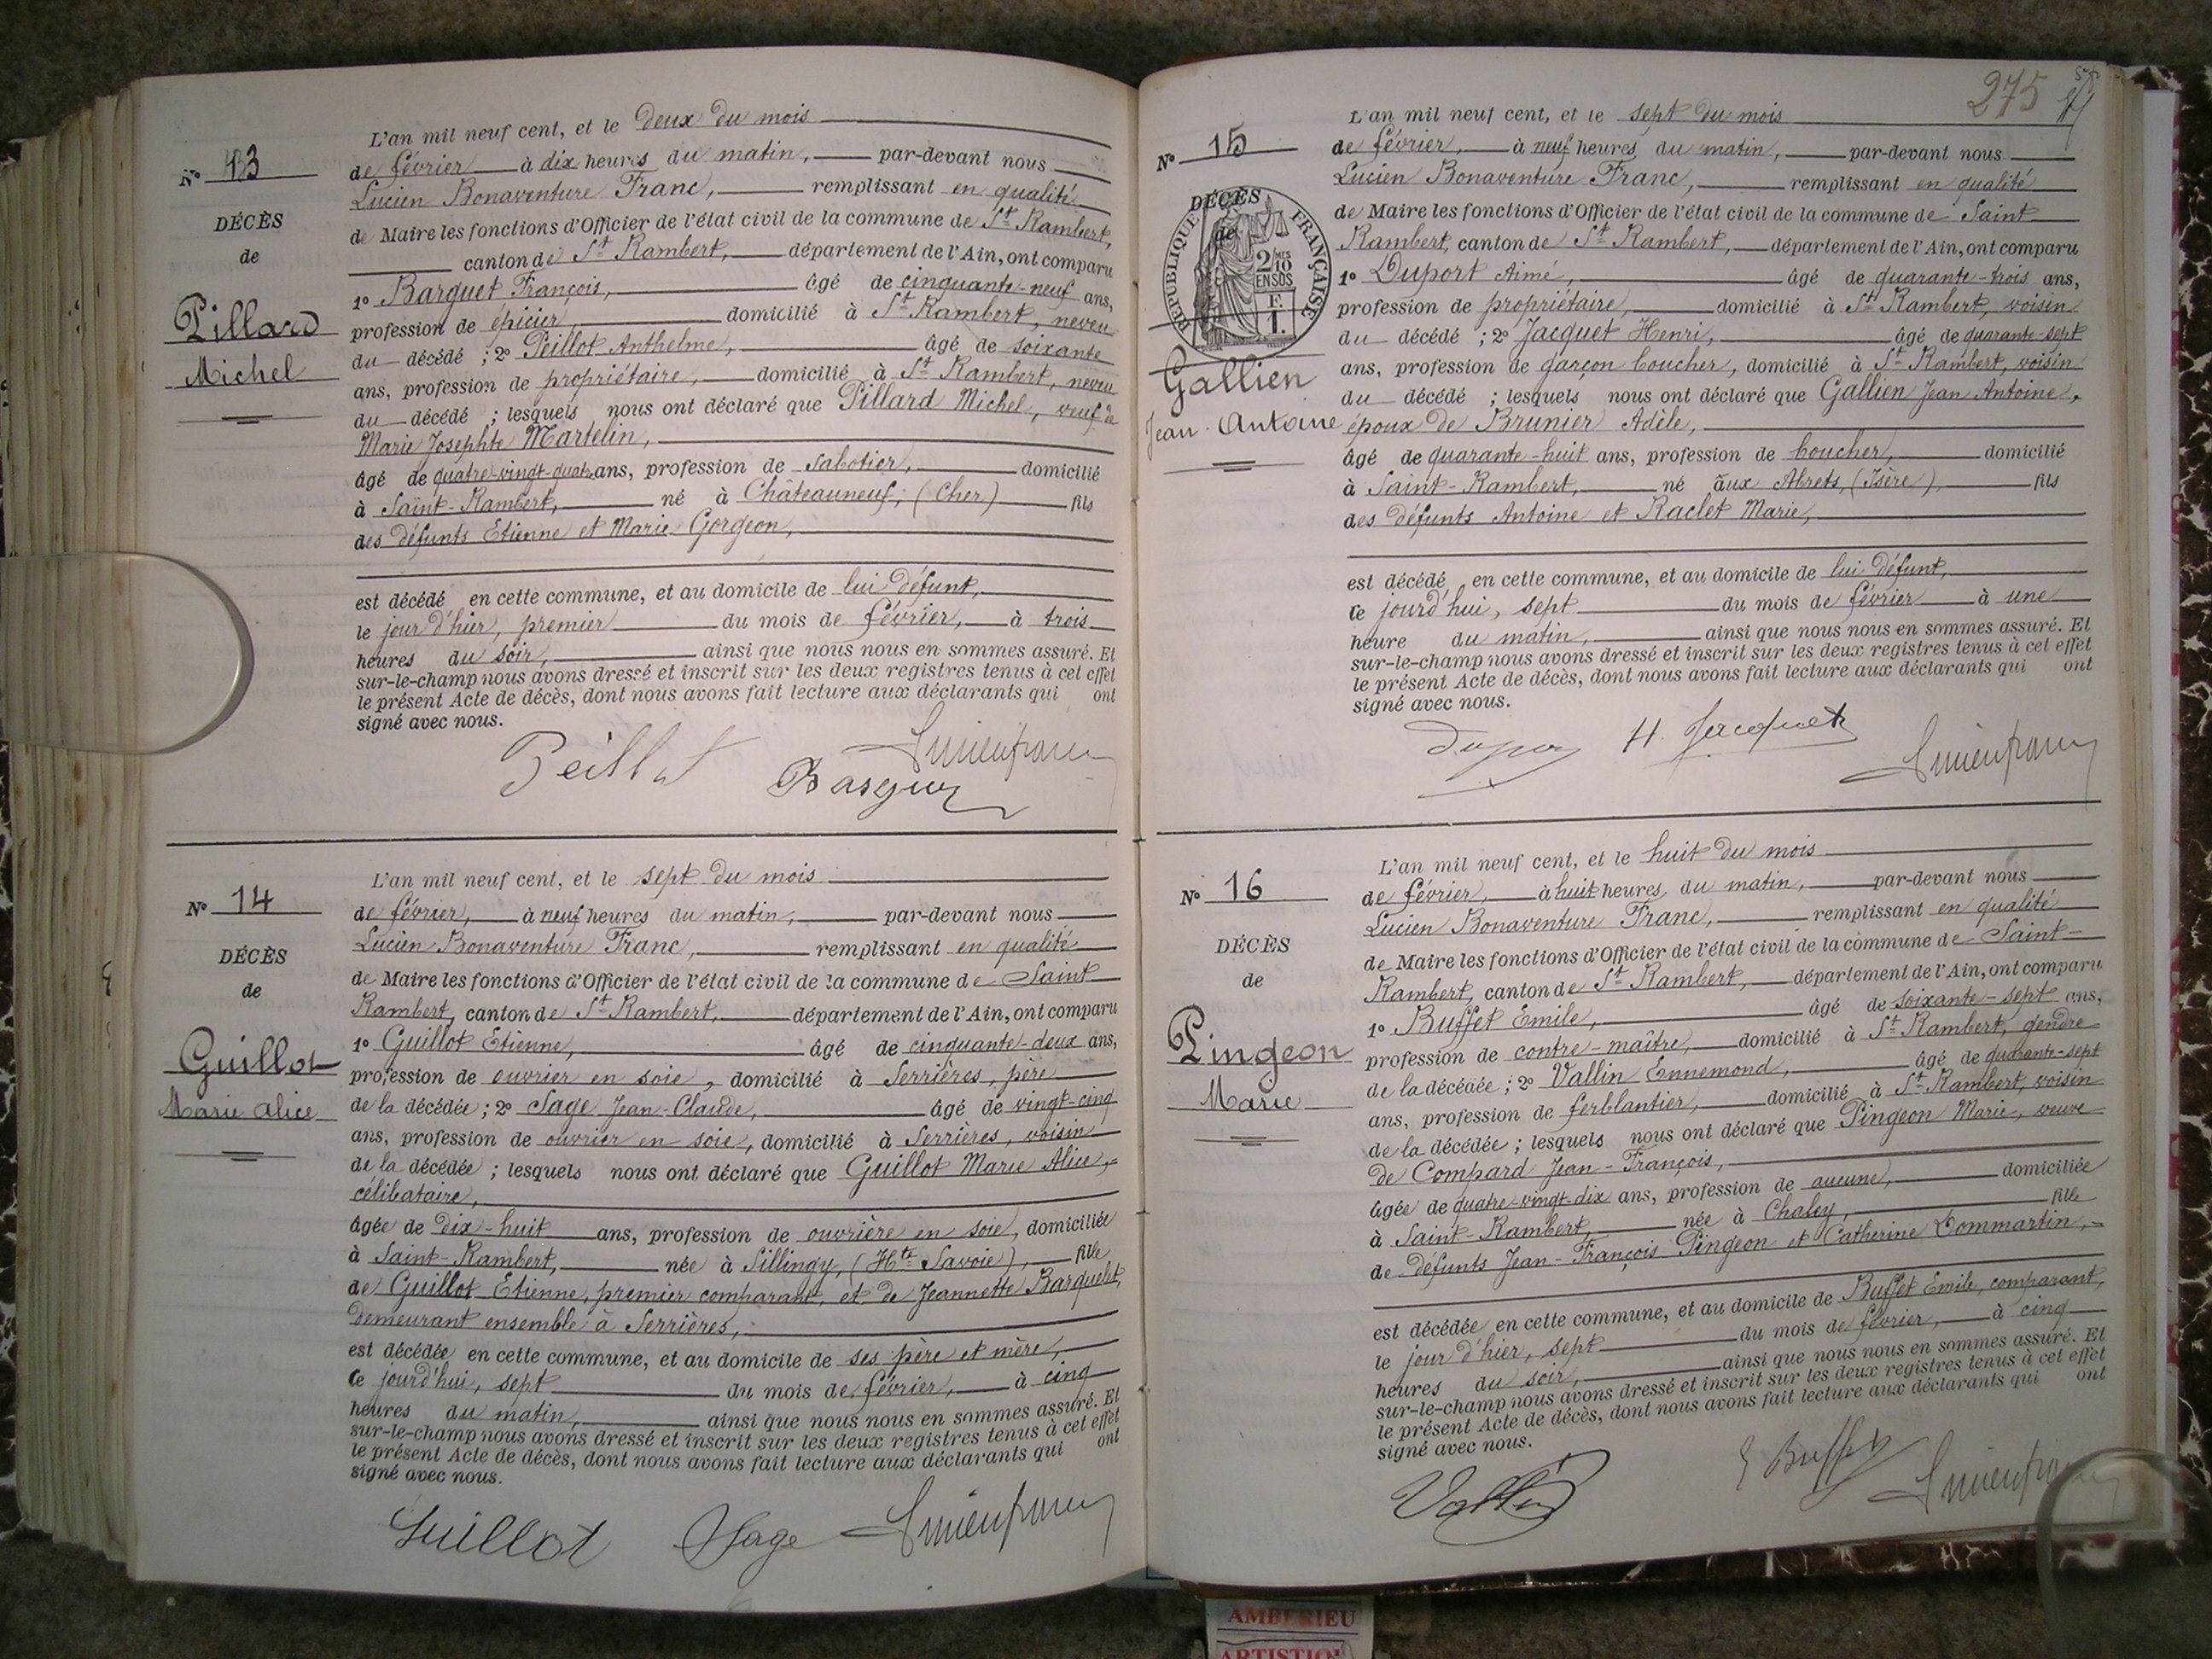 L'an mil neuf cent, et le deux du mois
de février à dix heures du matin, par-devant nous
Lucien Bonaventure Franc, remplissant en qualité
de Maire les fonctions d'Officier de l'état civil de la commune de St Rambert,
canton de St Rambert, département de l'Ain, ont comparu
1o Barquet François, âgé de cinquante-neuf ans,
profession de épicier domicilié à St Rambert, neveu
du décédé ; 2o Peillot Anthelme, âgé de soixante
ans, profession de propriétaire, domicilié à St Rambert, neveu
du décédé ; lesquels nous ont déclaré que Pillard Michel, veuf de
Marie Josephte Martelin,
âgé de quatre-vingt-quatre ans, profession de sabotier, domicilié
à Saint-Rambert, né à Châteauneuf, (Cher) fils
des défunts Etienne et Marie Gorgeon,
est décédé en cette commune, et au domicile de lui défunt,
le jour d'hier, premier du mois de février, à trois
heures du soir, ainsi que nous nous en sommes assuré. Et
sur-le-champ nous avons dressé et inscrit sur les deux registres tenus à cet effet
le présent Acte de décès, dont nous avons fait lecture aux déclarants qui ont
signé avec nous.
No 13
DÉCÈS
de
Pillard
Michel
Peillot
Lucien franc
Barquet
No 14
DÉCÈS
de
Guillot
Marie Alice
L'an mil neuf cent, et le sept du mois
de février, à neuf heures du matin, par-devant nous
Lucien Bonaventure Franc, remplissant en qualité
de Maire les fonctions d'Officier de l'état civil de la commune de Saint
Rambert, canton de St Rambert, département de l'Ain, ont comparu
1o Guillot Etienne, âgé de cinquante-deux ans,
profession de ouvrier en soie, domicilié à Serrières, père
de la décédée ; 2o Sage Jean-Claude, âgé de vingt-cinq
ans, profession de ouvrier en soie, domicilié à Serrières, voisin
de la décédée ; lesquels nous ont déclaré que Guillot Marie Alice,
célibataire,
âgée de dix-huit ans, profession de ouvrière en soie, domiciliée
à Saint-Rambert, née à Sillingy, (Hte Savoie), fille
de Guillot Etienne, premier comparant, et de Jeannette Barquelet,
demeurant ensemble à Serrières,
est décédée en cette commune, et au domicile de ses père et mère,
ce jourd'hui, sept du mois de février, à cinq
heures du matin, ainsi que nous nous en sommes assuré. Et
sur-le-champ nous avons dressé et inscrit sur les deux registres tenus à cet effet
le présent Acte de décès, dont nous avons fait lecture aux déclarants qui ont
signé avec nous.
Guillot Sage Lucien franc
275
No 15
DÉCÈS
de
RÉPUBLIQUE FRANÇAISE
2/10 MES
EN SUS
F.
1.
Gallien
Jean-Antoine
L'an mil neuf cent, et le sept du mois
de février, à neuf heures du matin, par-devant nous
Lucien Bonaventure Franc, remplissant en qualité
de Maire les fonctions d'Officier de l'état civil de la commune de Saint
Rambert, canton de St Rambert, département de l'Ain, ont comparu
1o Duport Aimé, âgé de quarante-trois ans,
profession de propriétaire, domicilié à St Rambert, voisin
du décédé ; 2o Jacquet Henri, âgé de quarante-sept
ans, profession de garçon boucher, domicilié à St Rambert, voisin
du décédé ; lesquels nous ont déclaré que Gallien Jean Antoine,
époux de Brunier Adèle,
âgé de quarante-huit ans, profession de boucher, domicilié
à Saint-Rambert, né aux Abrets, (Isère) fils
des défunts Antoine et Raclet Marie,
est décédé en cette commune, et au domicile de lui défunt,
ce jourd'hui, sept du mois de février à une
heure du matin, ainsi que nous nous en sommes assuré. Et
sur-le-champ nous avons dressé et inscrit sur les deux registres tenus à cet effet
le présent Acte de décès, dont nous avons fait lecture aux déclarants qui ont
signé avec nous.
Duport H. Jacquet Lucien franc
No 16
DÉCÈS
de
Pingeon
Marie
L'an mil neuf cent, et le huit du mois
de février, à huit heures du matin, par-devant nous
Lucien Bonaventure Franc, remplissant en qualité
de Maire les fonctions d'Officier de l'état civil de la commune de Saint-
Rambert, canton de St Rambert, département de l'Ain, ont comparu
1o Buffet Emile, âgé de soixante-sept ans,
profession de contre-maître, domicilié à St Rambert, gendre
de la décédée ; 2o Vallin Ennemond, âgé de quarante-sept
ans, profession de ferblantier, domicilié à St Rambert, voisin
de la décédée ; lesquels nous ont déclaré que Pingeon Marie, veuve
de Compard Jean-François,
âgée de quatre-vingt-dix ans, profession de aucune, domiciliée
à Saint-Rambert, née à Chaley, fille
de défunts Jean-François Pingeon et Catherine Dommartin,
est décédée en cette commune, et au domicile de Buffet Emile, comparant,
le jour d'hier, sept du mois de février, à cinq
heures du soir, ainsi que nous nous en sommes assuré. Et
sur-le-champ nous avons dressé et inscrit sur les deux registres tenus à cet effet
le présent Acte de décès, dont nous avons fait lecture aux déclarants qui ont
signé avec nous.
Vallin E Buffet Lucien franc
AMBERIEU